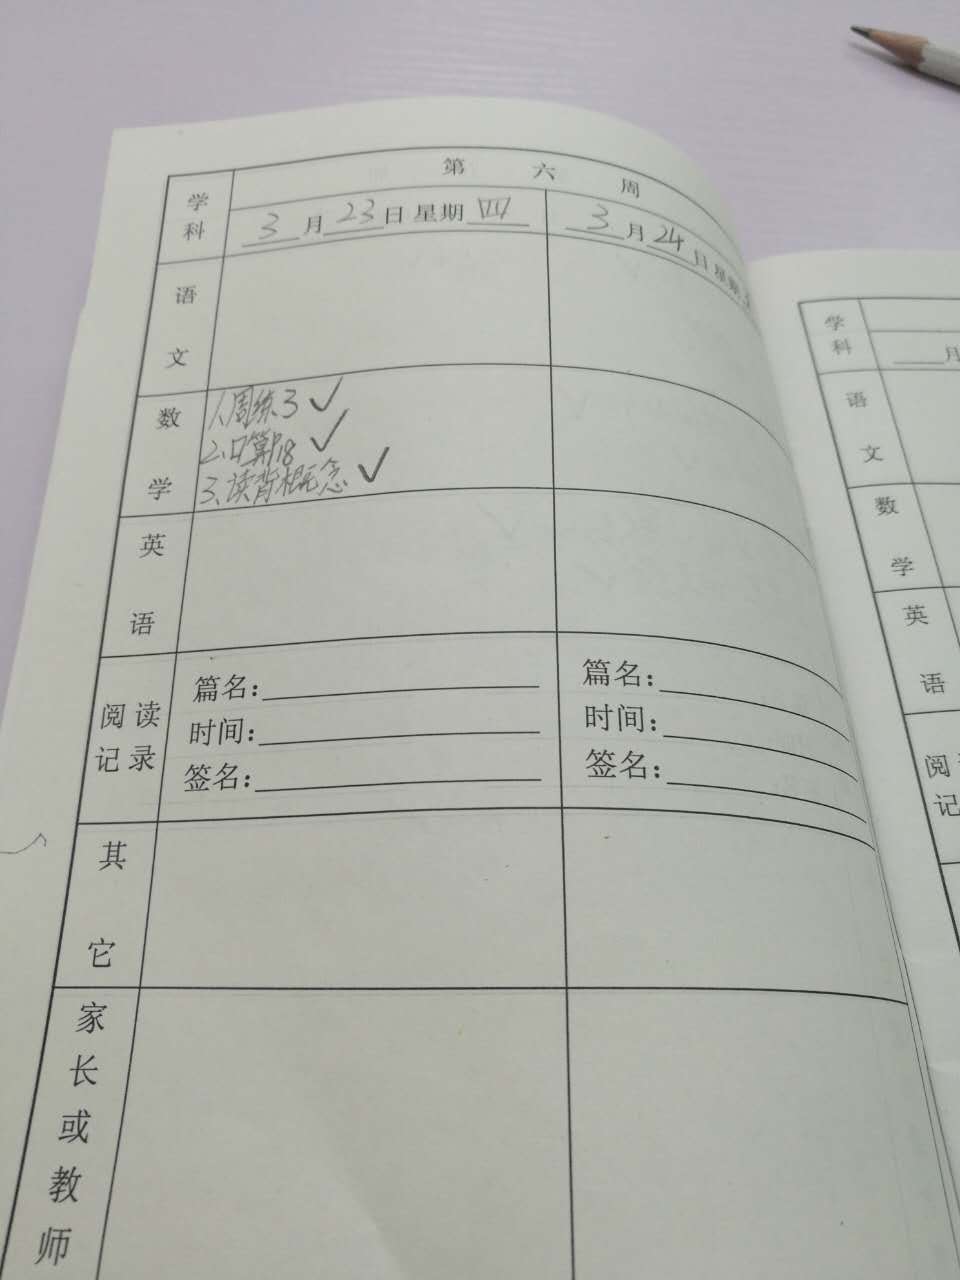 第六周
学科
3月23日星期四
3月24日星期
语文
数学
1、周练3✓
2、口算P18✓
3、读背概念✓
英语
阅读记录
篇名：
时间：
签名：
篇名：
时间：
签名：
其它
家长或教师
学科
月
语文
数学
英语
阅
记